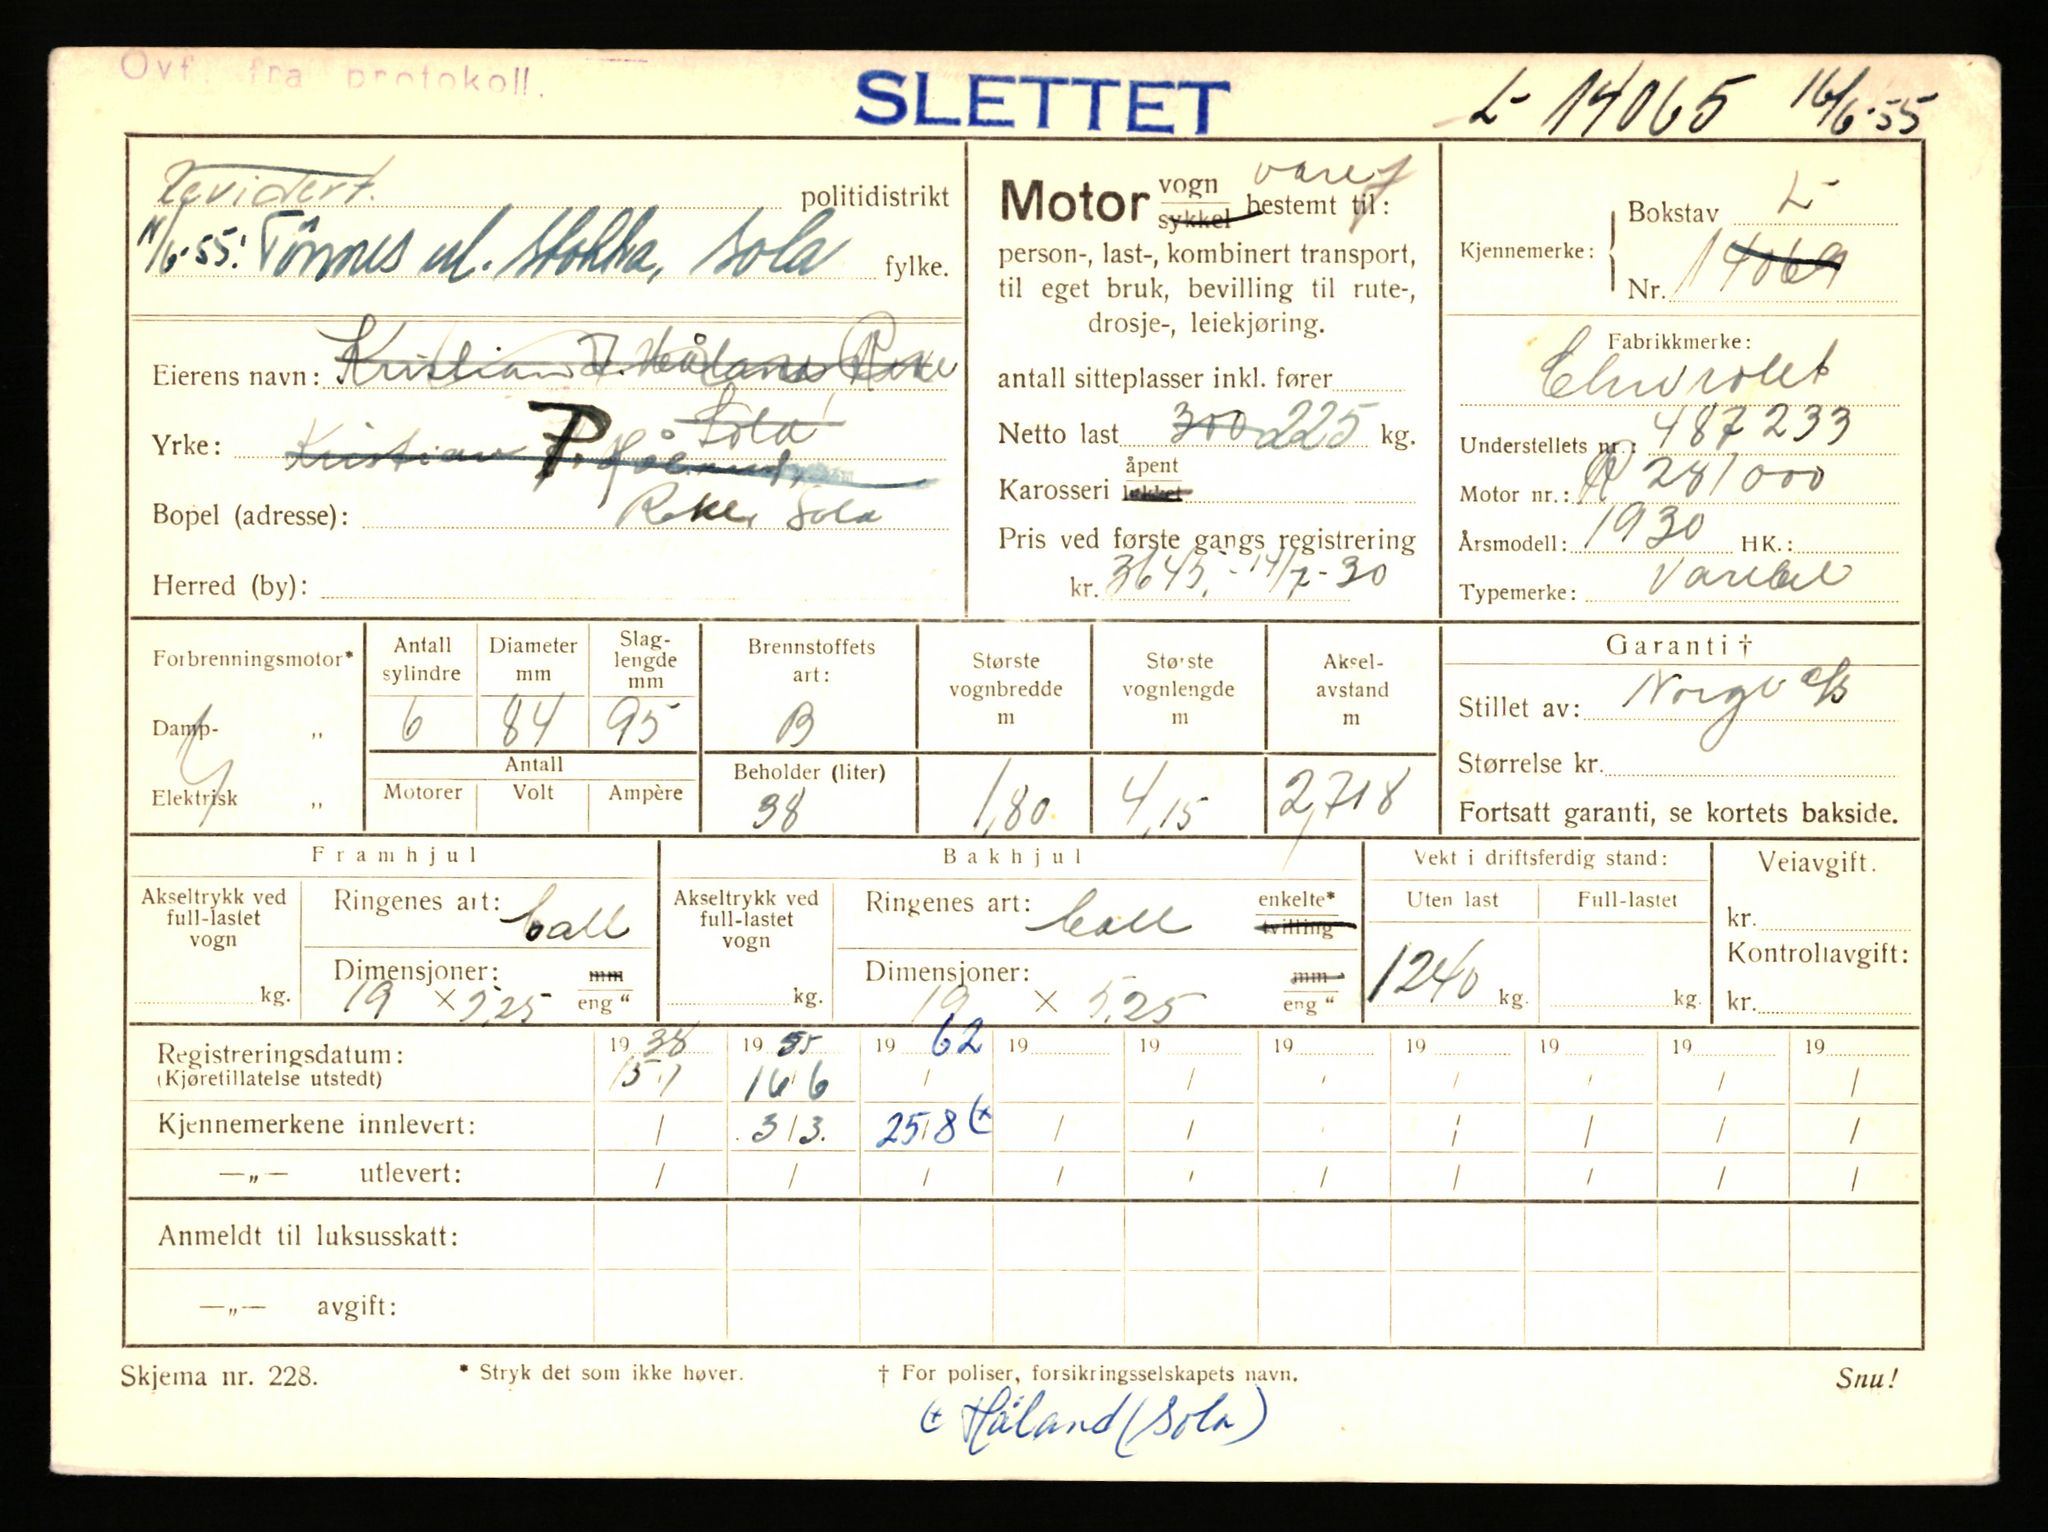 Ovf. fra protokoll.
SLETTET
L- 14065 16/6-55
Revidert. politidistrikt
Tönnes M. Stokka, Sola fylke.
Eierens navn: Kristian T. Håland Reke
Sola
Yrke: Kristian P. Håland,
Bopel (adresse): Reke, Sola
Herred (by):
Motor vogn sykkel bestemt til: vare
person-, last-, kombinert transport,
til eget bruk, bevilling til rute-,
drosje-, leiekjøring.
antall sitteplasser inkl. fører
Netto last 300 225 kg.
Karosseri åpent lukket
Pris ved første gangs registrering
kr. 3645,- 14/7-30
Kjennemerke: Bokstav L-
Nr. 14069
Fabrikkmerke:
Chevrolet
Understellets nr.: 487233
Motor nr.: R 281000
Årsmodell: 1930 HK.:
Typemerke: Varebil
Forbrenningsmotor*
Damp- „
Elektrisk „
Antall sylindre 6
Diameter mm 84
Slag-lengde mm 95
Antall
Motorer Volt Ampère
Brennstoffets art: B
Beholder (liter) 38
Største vognbredde m 1,80
Største vognlengde m 4,15
Aksel-avstand m 2,718
Garanti †
Stillet av: Norge a/s
Størrelse kr.
Fortsatt garanti, se kortets bakside.
Framhjul
Akseltrykk ved full-lastet vogn kg.
Ringenes art: ball
Dimensjoner: 19 × 5,25 mm eng "
Bakhjul
Akseltrykk ved full-lastet vogn kg.
Ringenes art: ball enkelte* tvilling
Dimensjoner: 19 × 5,25 mm eng "
Vekt i driftsferdig stand:
Uten last Full-lastet
1240 kg. kg.
Veiavgift.
kr.
Kontrollavgift:
kr.
Registreringsdatum: 19 38 19 55 19 62 19 19 19 19 19 19 19
(Kjøretillatelse utstedt) 15/1 16/6 / / / / / / /
Kjennemerkene innlevert: / 3/3. 25/8 (* / / / / / / /
—„— utlevert: / / / / / / / / / /
Anmeldt til luksusskatt:
—„— avgift:
Skjema nr. 228.
* Stryk det som ikke høver.
† For poliser, forsikringsselskapets navn.
Snu!
(* Håland (Sola)